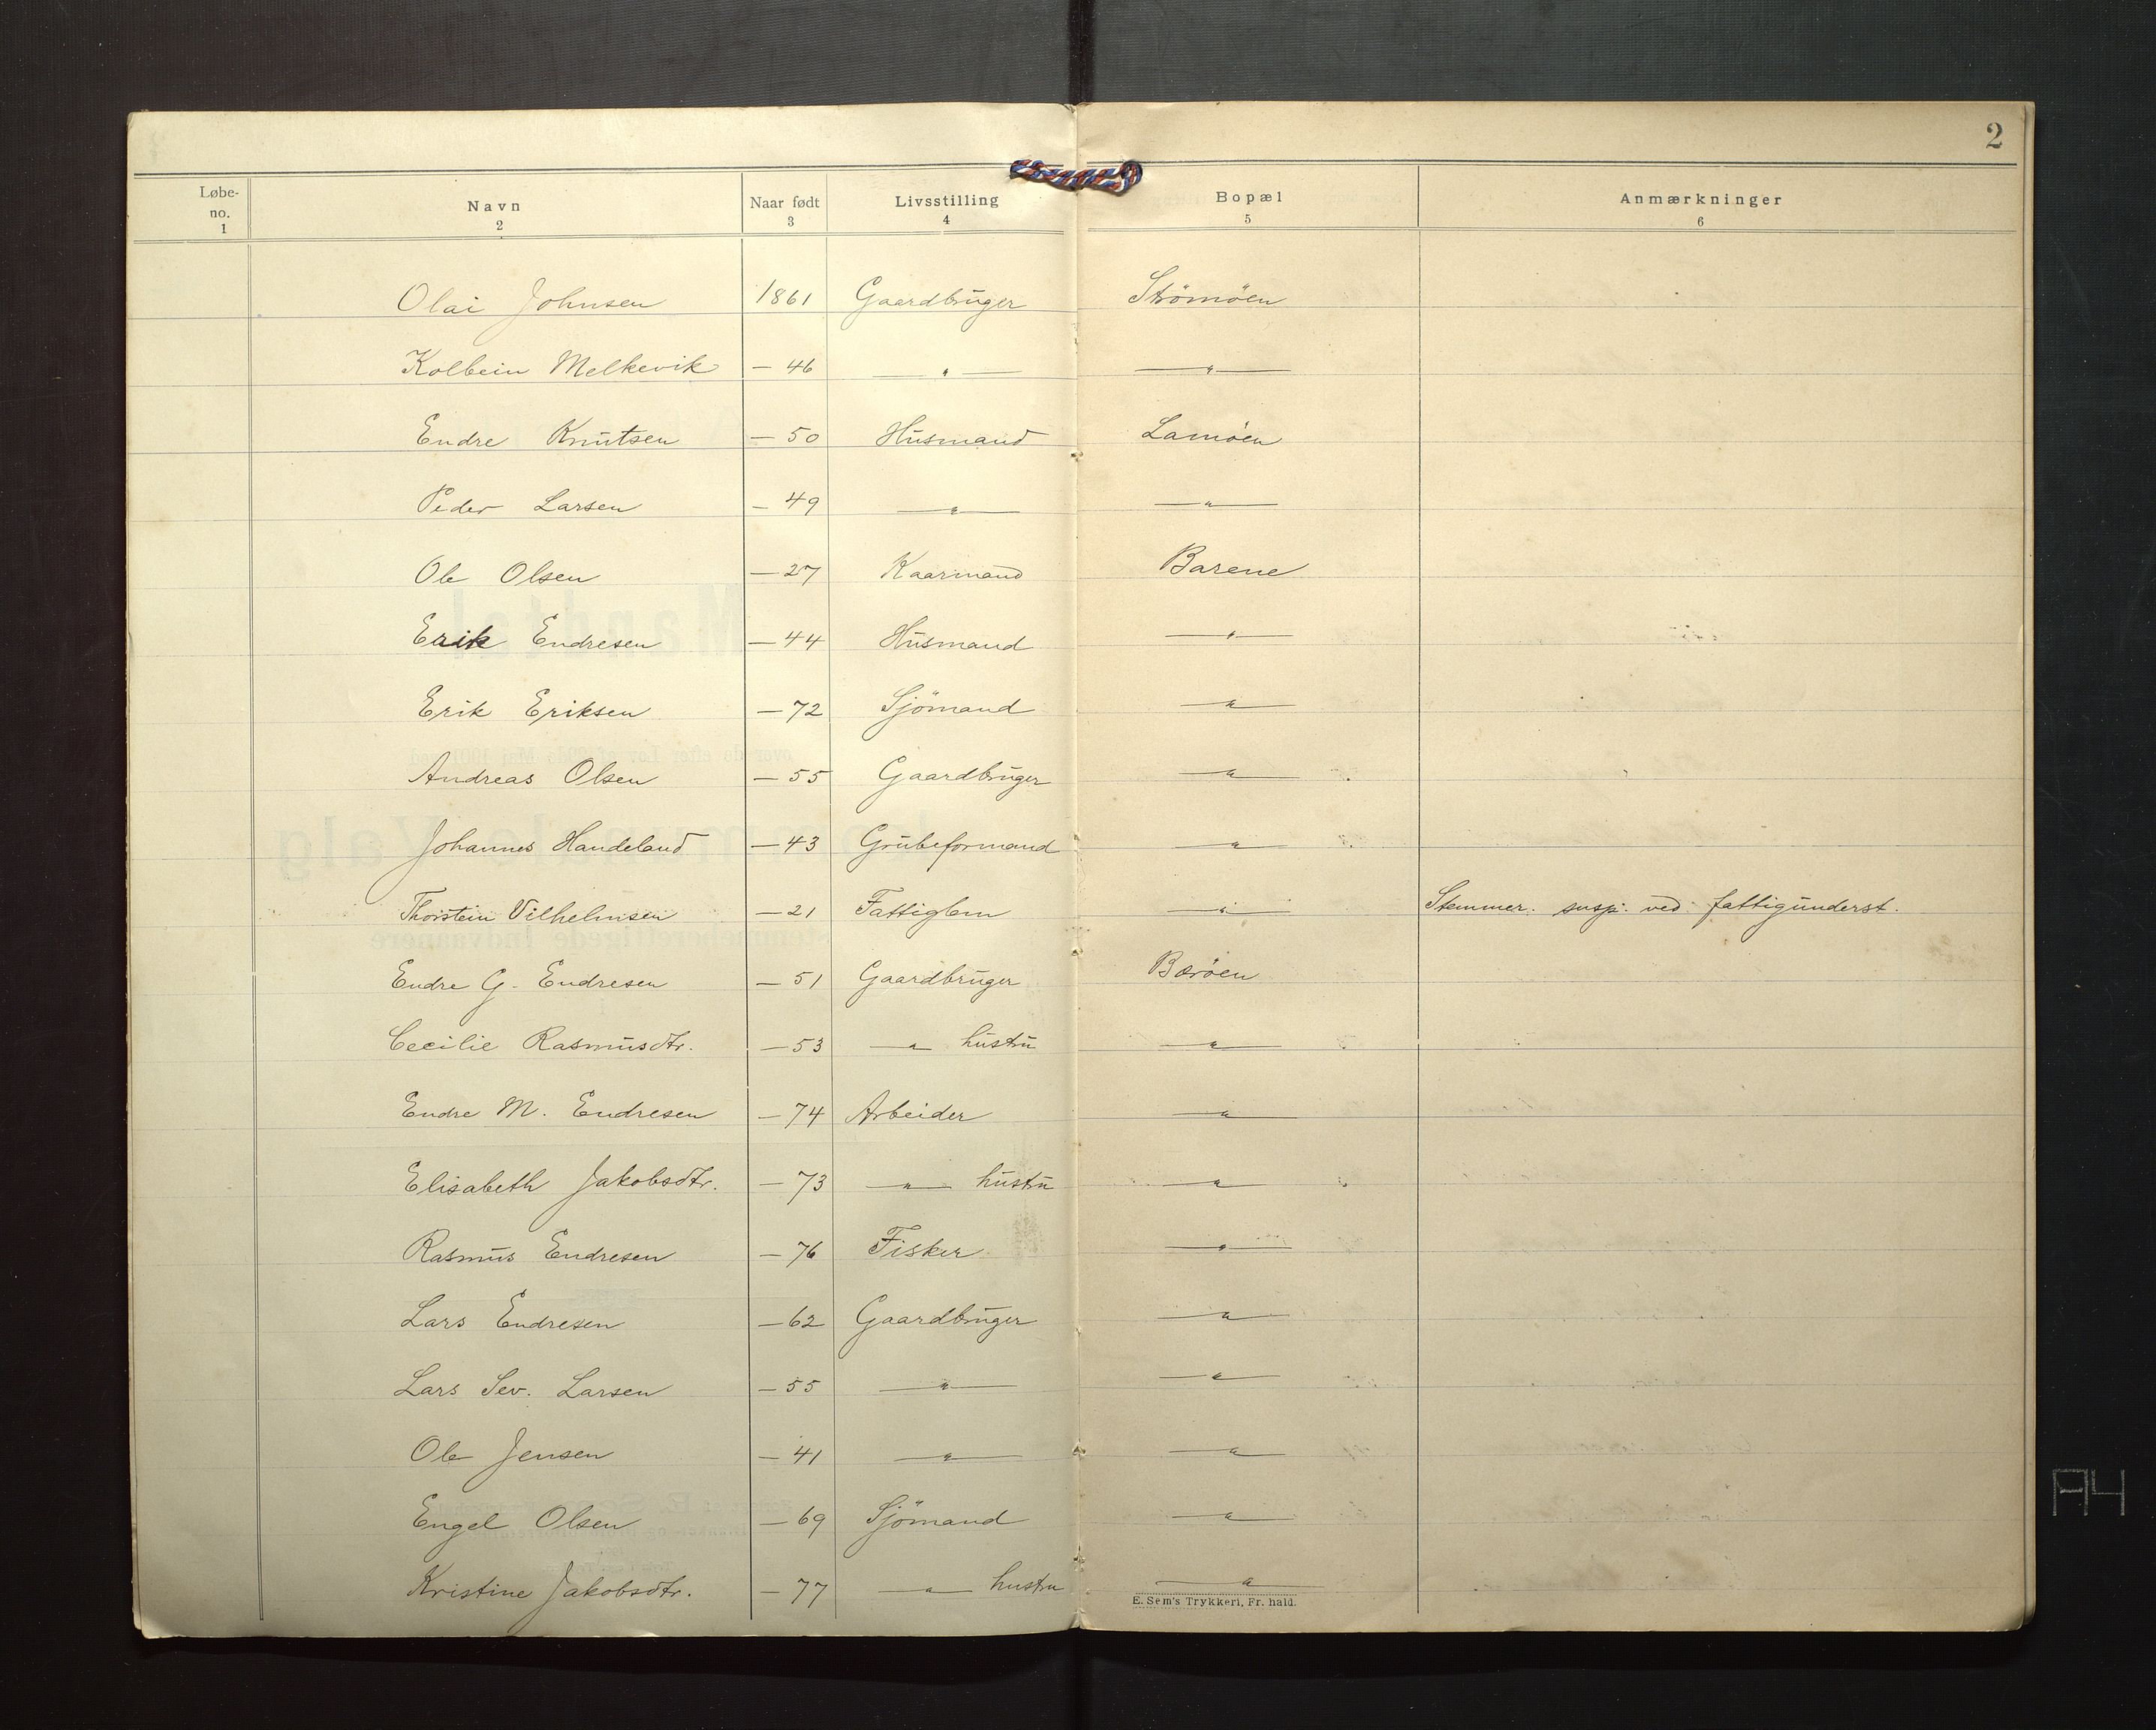 2
Løbe-no. 1 Navn 2 Naar født 3 Livsstilling 4 Bopæl 5 Anmærkninger 6
Olai Johnsen 1861 Gaardbrŭger Strömöen
Kolbein Melkevik — 46 —"— —"—
Endre Knŭtsen — 50 Hŭsmand Lamöen
Peder Larsen — 49 —"— —"—
Ole Olsen — 27 Kaarmand Barene
Erik Endresen — 44 Hŭsmand —"—
Erik Eriksen — 72 Sjömand —"—
Andreas Olsen — 55 Gaardbrŭger —"—
Johannes Handeland — 43 Grŭbeformand —"—
Thorstein Vilhelmsen — 21 Fattiglem —"— Stemmer. susp. ved fattigŭnderst.
Endre G. Endresen — 51 Gaardbrŭger Boröen
Cecilie Rasmŭsdtr. — 53 —"— hŭstrŭ —"—
Endre M. Endresen — 74 Arbeider —"—
Elisabeth Jakobsdtr. — 73 —"— hŭstrŭ —"—
Rasmŭs Endresen — 76 Fisker —"—
Lars Endresen — 62 Gaardbrŭger —"—
Lars Sev. Larsen — 55 —"— —"—
Ole Jensen — 41 —"— —"—
Engel Olsen — 69 Sjömand —"—
Kristine Jakobsdtr. — 77 —"— hustru —"—
E. Sem's Trykkeri, Fr. hald.
A4